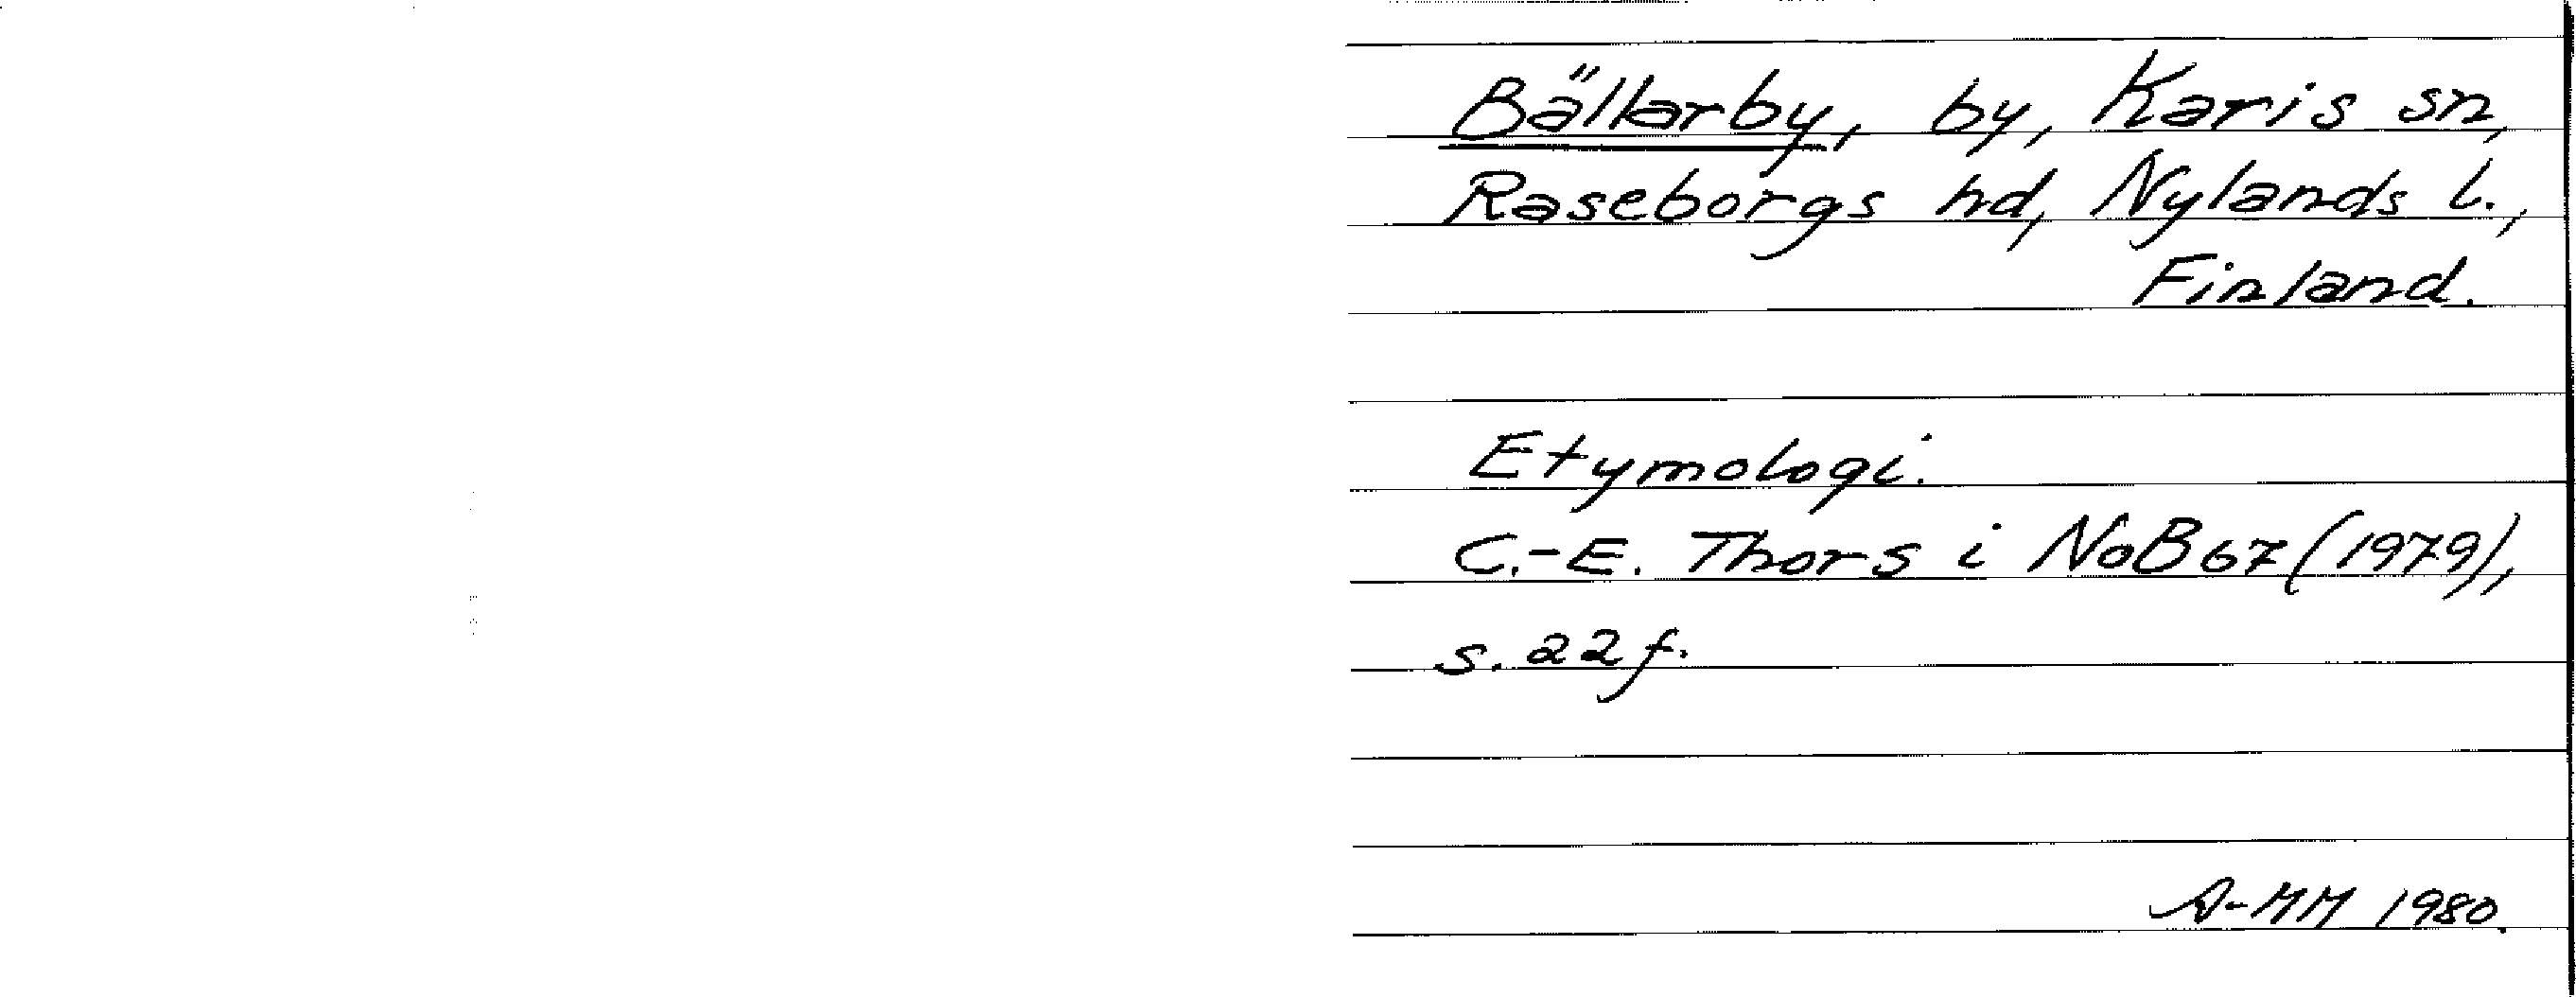 Bällarby, by, Karis sn,
Raseborgs hd, Nylands l.,
Finland.
Etymologi.
C.-E. Thors i NoB 67 (1979),
s. 22 f.
A-MM 1980.